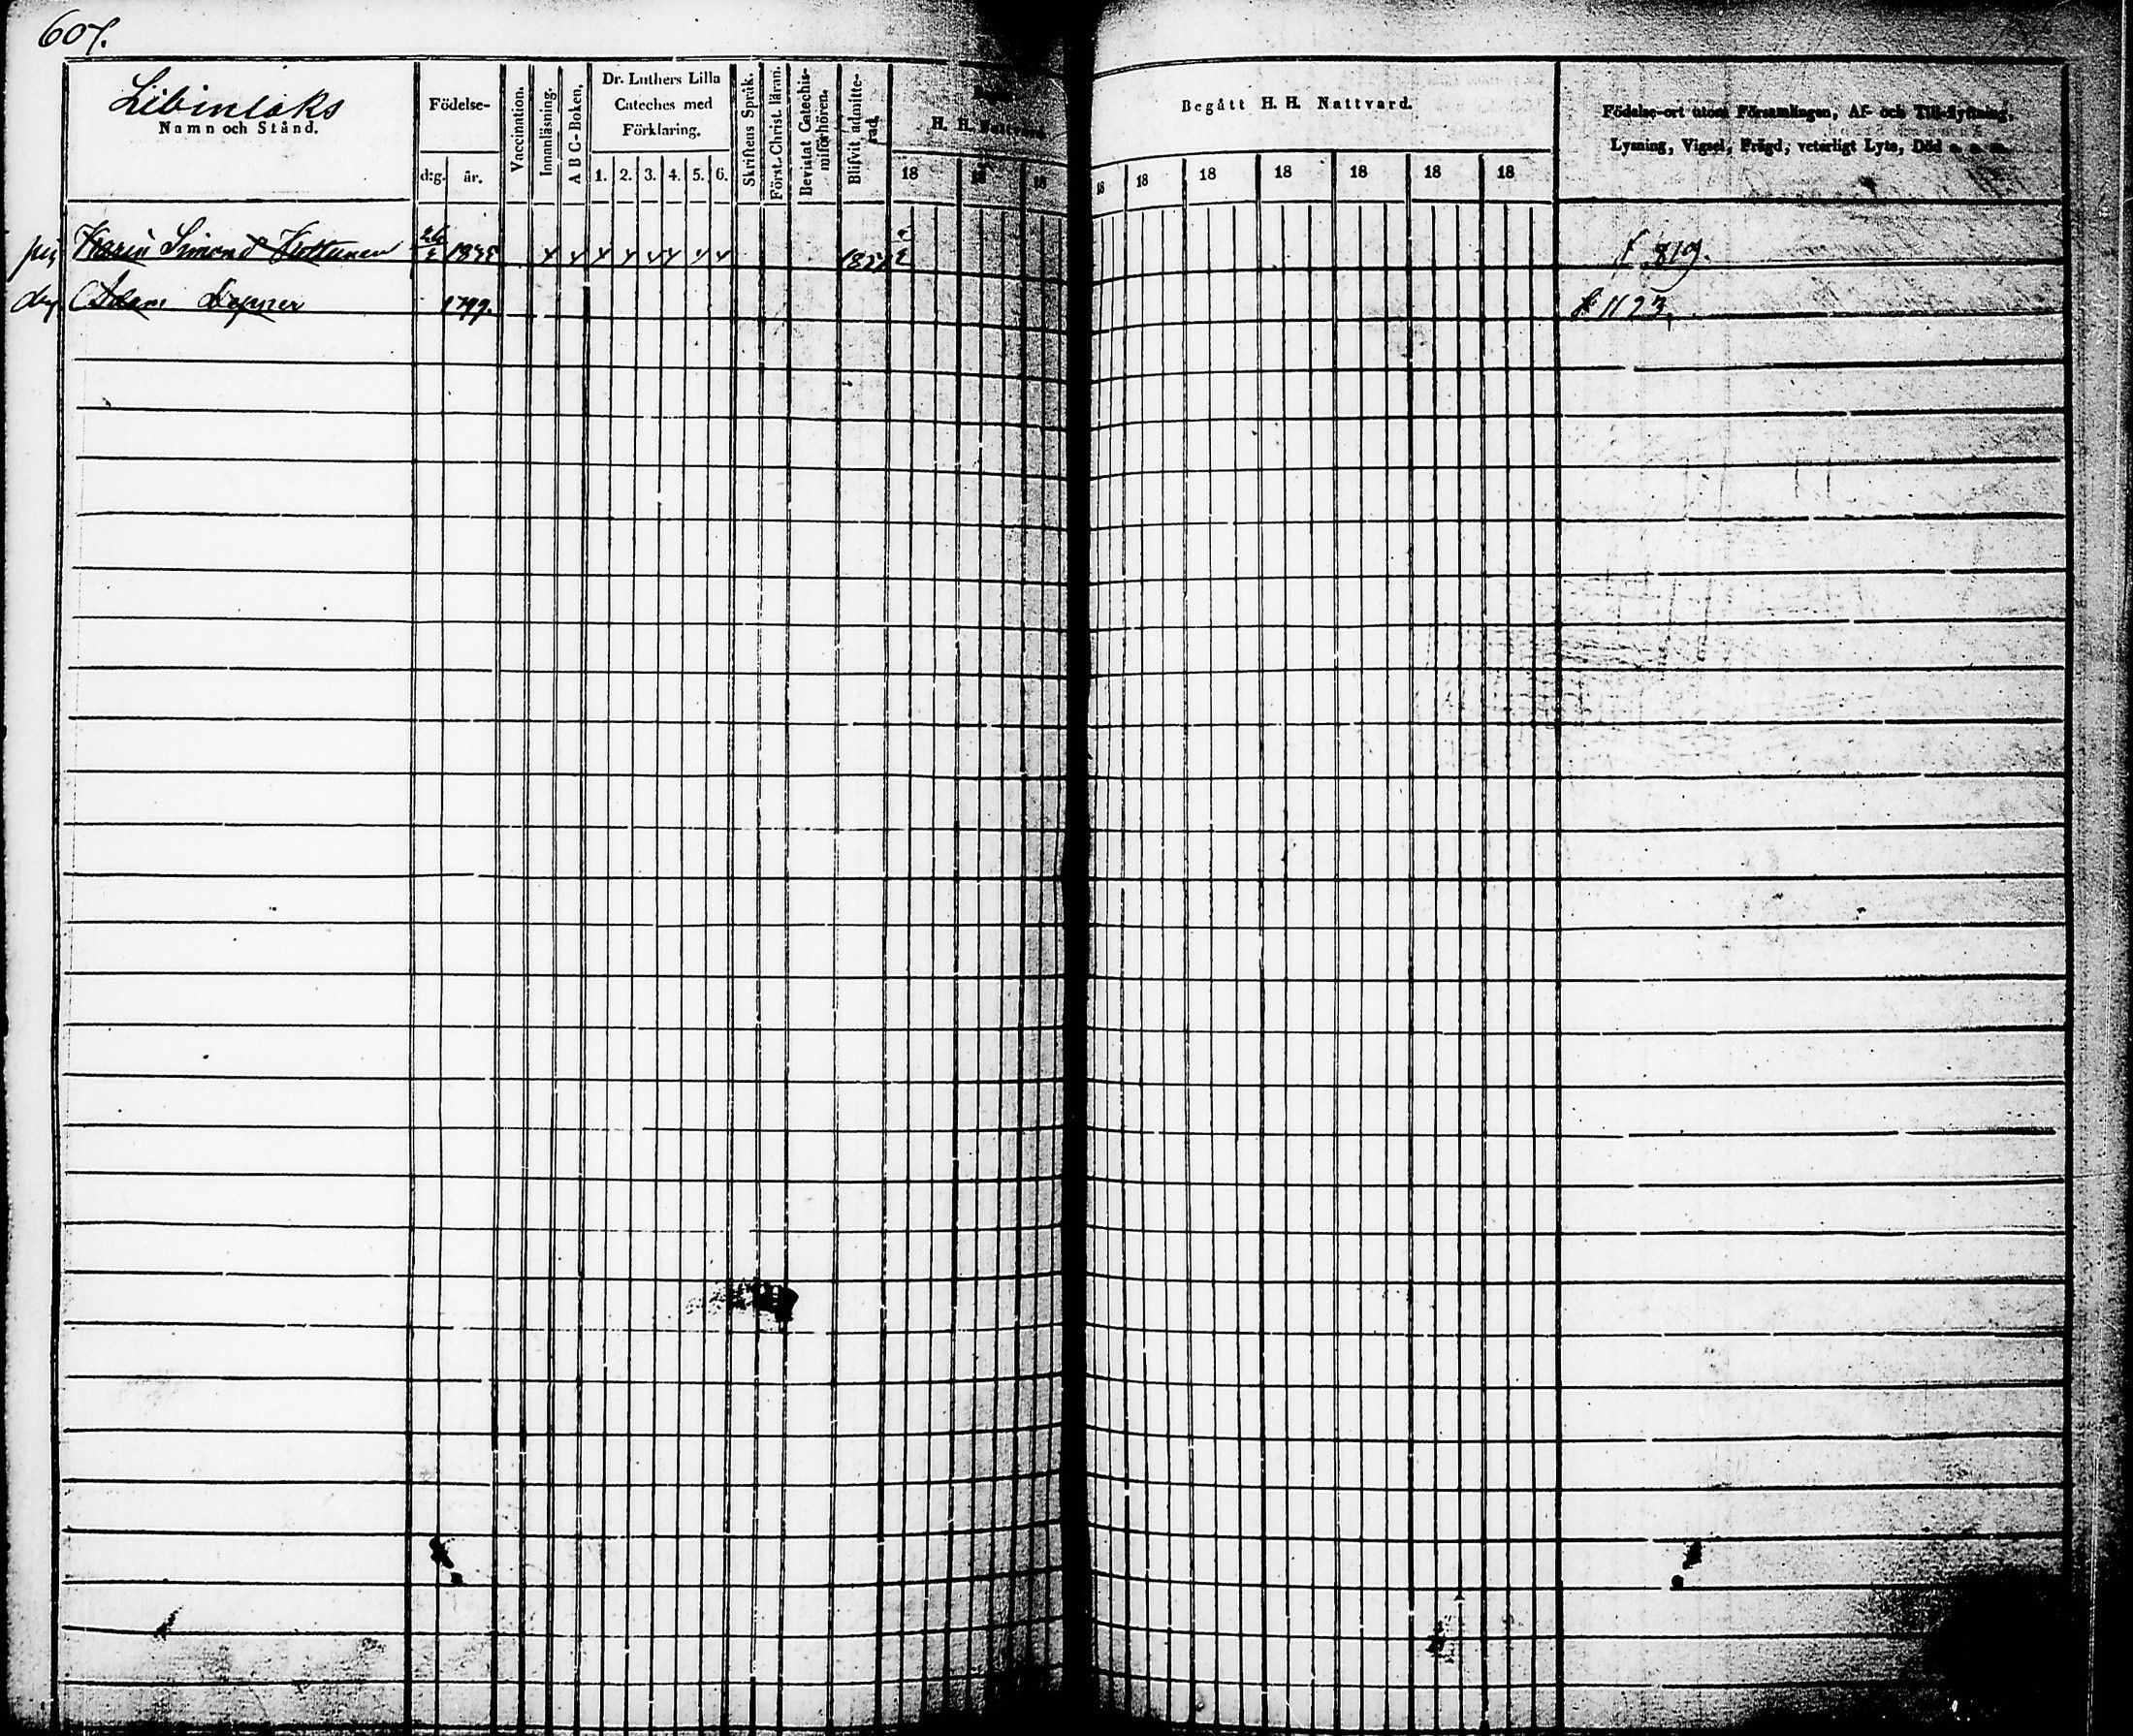 607.
Libinlaks
Namn och Stånd.
Födelse-
d:g. år.
Vaccination.
Innanläsning.
A B C-Boken,
Dr. Luthers Lilla
Cateches med
Förklaring.
1. 2. 3. 4. 5. 6.
Skriftens Språk.
Först. Christ. läran.
Bevistat Catechis-
miförhören.
Blifvit admitte-
rad.
H. H. Nattvard
18 18 18
Begått H. H. Nattvard.
18 18 18 18 18 18 18
Födelse-ort utom Församlingen, Af- och Till-flyttning,
Lysning, Vigsel, Frägd, veterligt Lyte, Död
pig Karin Simonsd f 819.
Adam 1799. f. 1123.